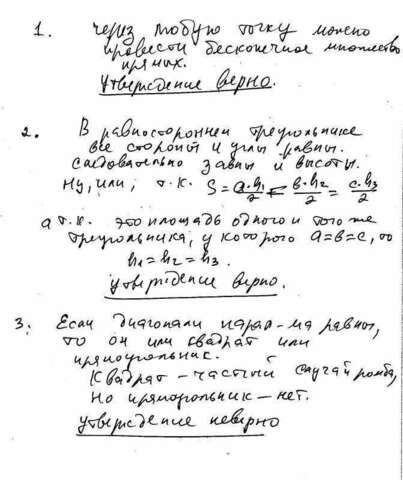 1. Через любую точку можно
провести бесконечное множество
прямых.
Утверждение верно.
2. В равностороннем треугольнике
все стороны и углы равны.
Следовательно равны и высоты.
Ну, или; т.к. S = a·h₁/2 = b·h₂/2 = c·h₃/2
а т.к. это площадь одного и того же
треугольника, у которого a=b=c, то
h₁=h₂=h₃.
утверждение верно.
3. Если диагонали парал-ма равны,
то он или квадрат или
прямоугольник.
Квадрат – частный случай ромба,
но прямоугольник – нет.
утверждение неверно